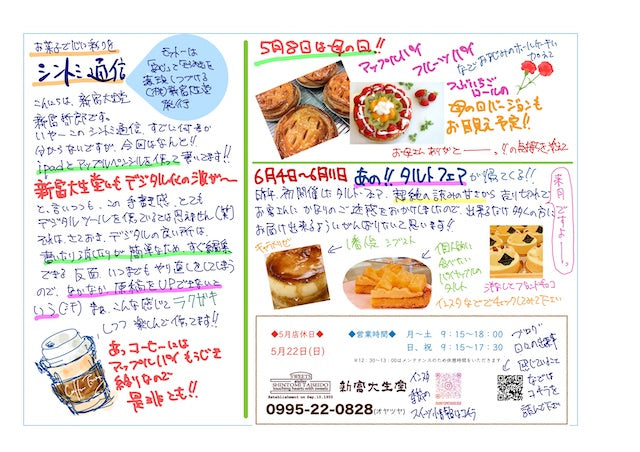 お菓子で心に彩りを
シントミ通信
モットーは
発行
こんにちは、新富大生堂
新富哲郎です。
いや〜このシントミ通信、すごい何者か
分からないですが、今回はなんと!!
ipadとアップルペンシルを使って書いてます!!
新富大生堂にもデジタル化の波が〜
と、言いつつも、この手書き感、とても
デジタルツールを使っているとは思えません(笑)
それは、さておき、デジタルの良い所は、
書いたり消したりが簡単なため、すぐ編集
できる反面、いつまでもやり直しをしてしまう
ので、なかなか原稿をUPできないと
いう(汗) まぁ、こんな感じでラクガキ
しつつ楽しんで作ってます!!
あっコーヒーには
アップルパイ もうじき
終りなので
是非とも!!
5月8日は母の日!!
アップルパイ
フルーツパイ
などおなじみのホールケーキに
加えて
つぶいちご
ロールの
母の日バージョンも
お目見え予定!!
お母さんありがと〜っ!!の気持ちを添えて
6月4日〜6月11日 あの!! タルトフェアが帰ってくる!!
昨年、初開催したタルトフェア、想像の読みの甘さから売り切れで
お客さんにかなりのご迷惑をおかけしましたので、出来るだけ多くの方に
お届け出来るようにがんばりたいと思います!!
来月ですよ〜っ。
1番人気 シブスト
個人的に
食べたい
パイナップルの
タルト
インスタなどでチェックしてみて下さい
◆5月店休日◆
5月22日(日)
◆営業時間◆
月〜土 9:15〜18:00
日、祝 9:15〜17:30
※12:30〜13:00はメンテナンスのため休憩時間をいただきます
SWEETS
SHINTOMI TAISEIDO
touching hearts with sweets
Establishment on Sep.10.1950
新富大生堂
0995-22-0828(オヤツヤ)
インスタ
スイーツ情報はコチラ
ブログ
日々の出来事
感じていること
などは
コチラを
読んで下さい